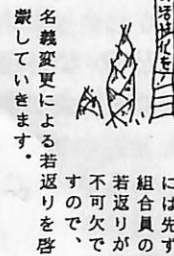 活性化を!
には先ず
組合員の
若返りが
不可欠で
すので、
名義変更による若返りを啓
蒙していきます。